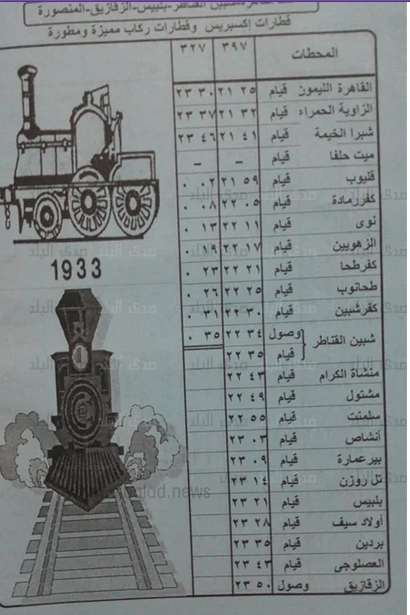 شبين القناطر-بلبيس-الزقازيق-المنصورة
قطارات إكسبريس وقطارات ركاب مميزة ومطورة
المحطات ٣٩٧ ٣٢٧
القاهرة الليمون قيام ٢١ ٢٥ ٢٣ ٣٠
الزاوية الحمراء قيام ٢١ ٣٢ ٢٣ ٣٧
شبرا الخيمة قيام ٢١ ٤١ ٢٣ ٤٦
ميت حلفا قيام – –
قليوب قيام ٢١ ٥٩ ٠ ٠٢
كفررمادة قيام ٢٢ ٠٥ ٠ ٠٨
نوى قيام ٢٢ ١١ ٠ ١٣
الزهويين قيام ٢٢ ١٧ ٠ ١٩
كفرطحا قيام ٢٢ ٢١ ٠ ٢٣
طحانوب قيام ٢٢ ٢٥ ٠ ٢٦
كفرشبين قيام ٢٢ ٣٠ ٠ ٣١
شبين القناطر وصول ٢٢ ٣٤ ٠ ٣٥
قيام ٢٢ ٣٥
منشاة الكرام قيام ٢٢ ٤٣
مشتول قيام ٢٢ ٤٩
سلمنت قيام ٢٢ ٥٥
أنشاص قيام ٢٣ ٠٣
بيرعمارة قيام ٢٣ ٠٩
تل روزن قيام ٢٣ ١٤
بلبيس قيام ٢٣ ٢١
أولاد سيف قيام ٢٣ ٢٨
بردين قيام ٢٣ ٣٥
العصلوجى قيام ٢٣ ٤٣
الزقازيق وصول ٢٣ ٥٠
1933
صدى البلد